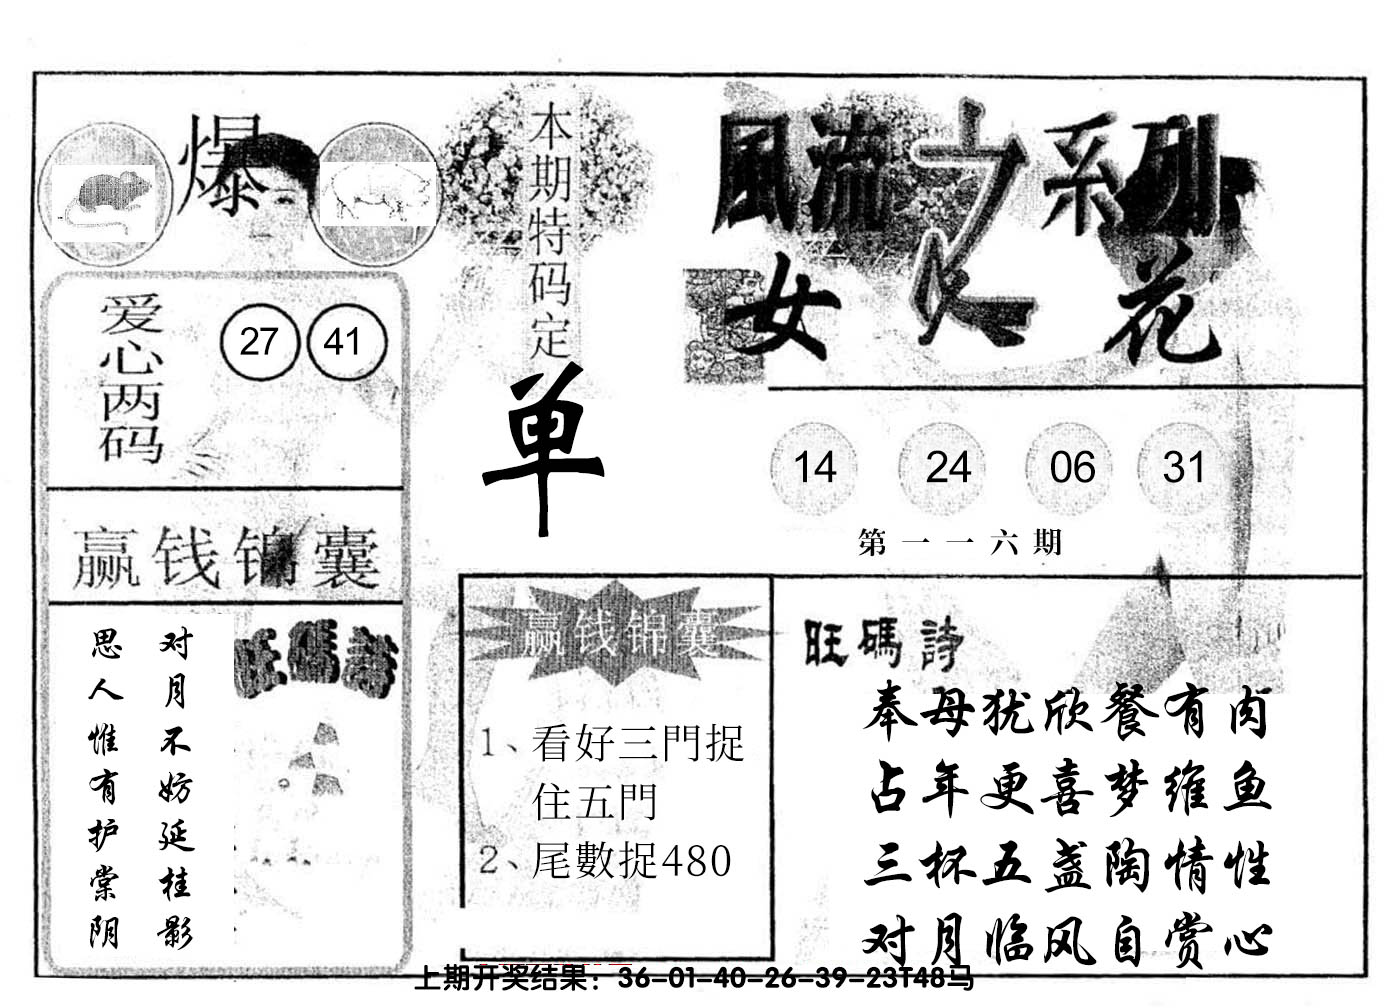 爆
本期特码定
单
風流之系列
女人花
爱心两码
27 41
14 24 06 31
第一一六期
赢钱锦囊
对月不妨延桂影
思人惟有护棠阴
旺碼詩
赢钱锦囊
1、看好三門捉
住五門
2、尾數捉480
旺碼詩
奉母犹欣餐有肉
占年更喜梦维鱼
三杯五盏陶情性
对月临风自赏心
上期开奖结果：36-01-40-26-39-23T48马